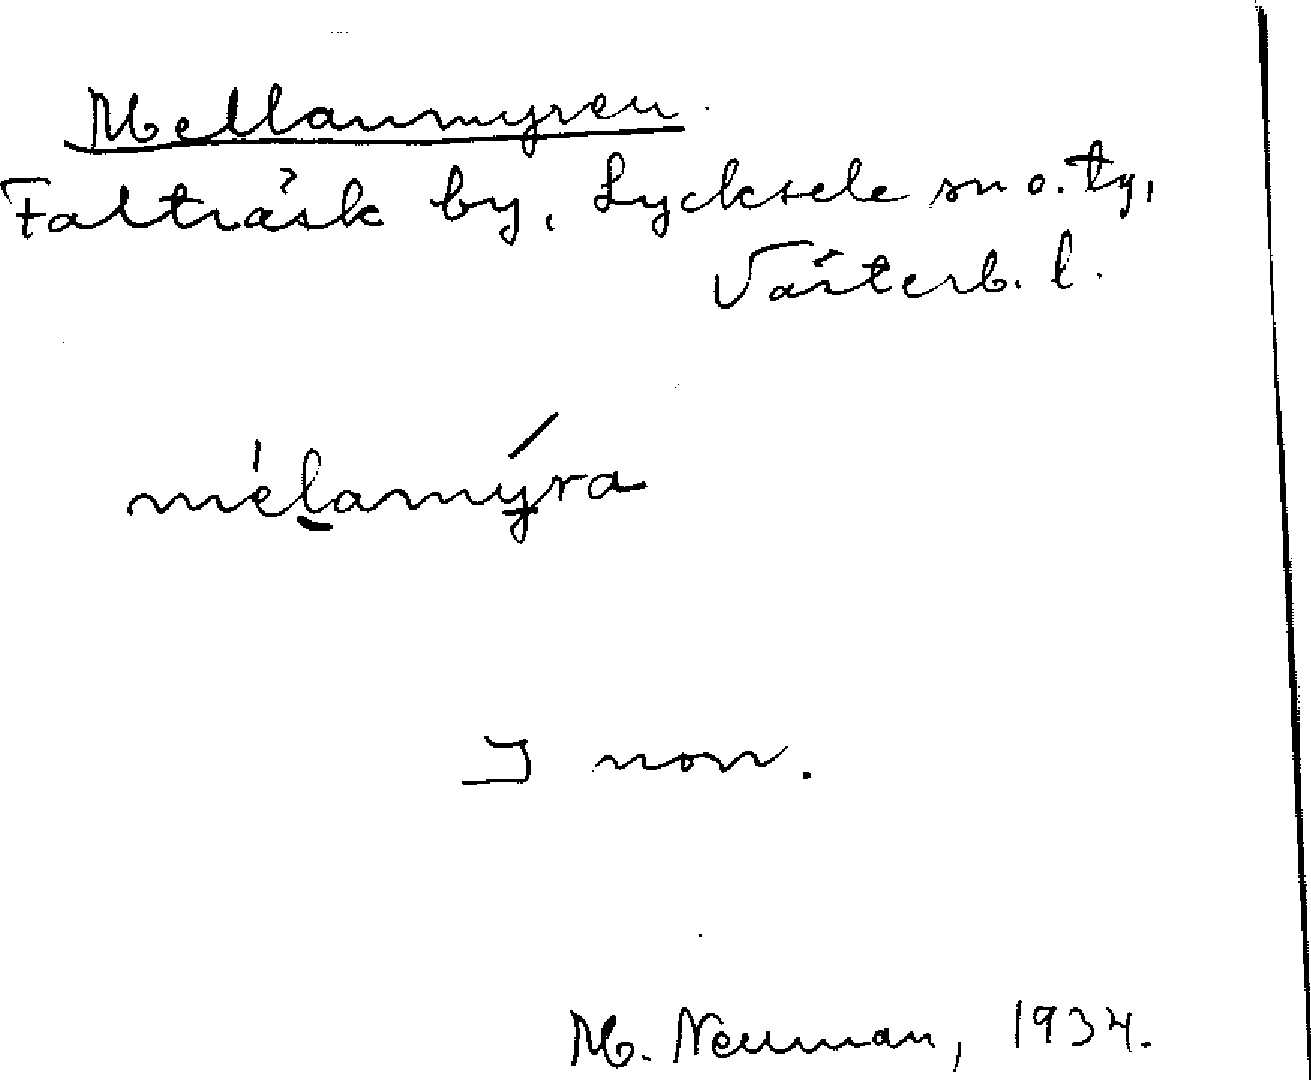 Mellanmyren
Falträsk by, Lycksele sn o. tg,
Västerb. l.
mélamýra
I non.
M. Neuman, 1934.